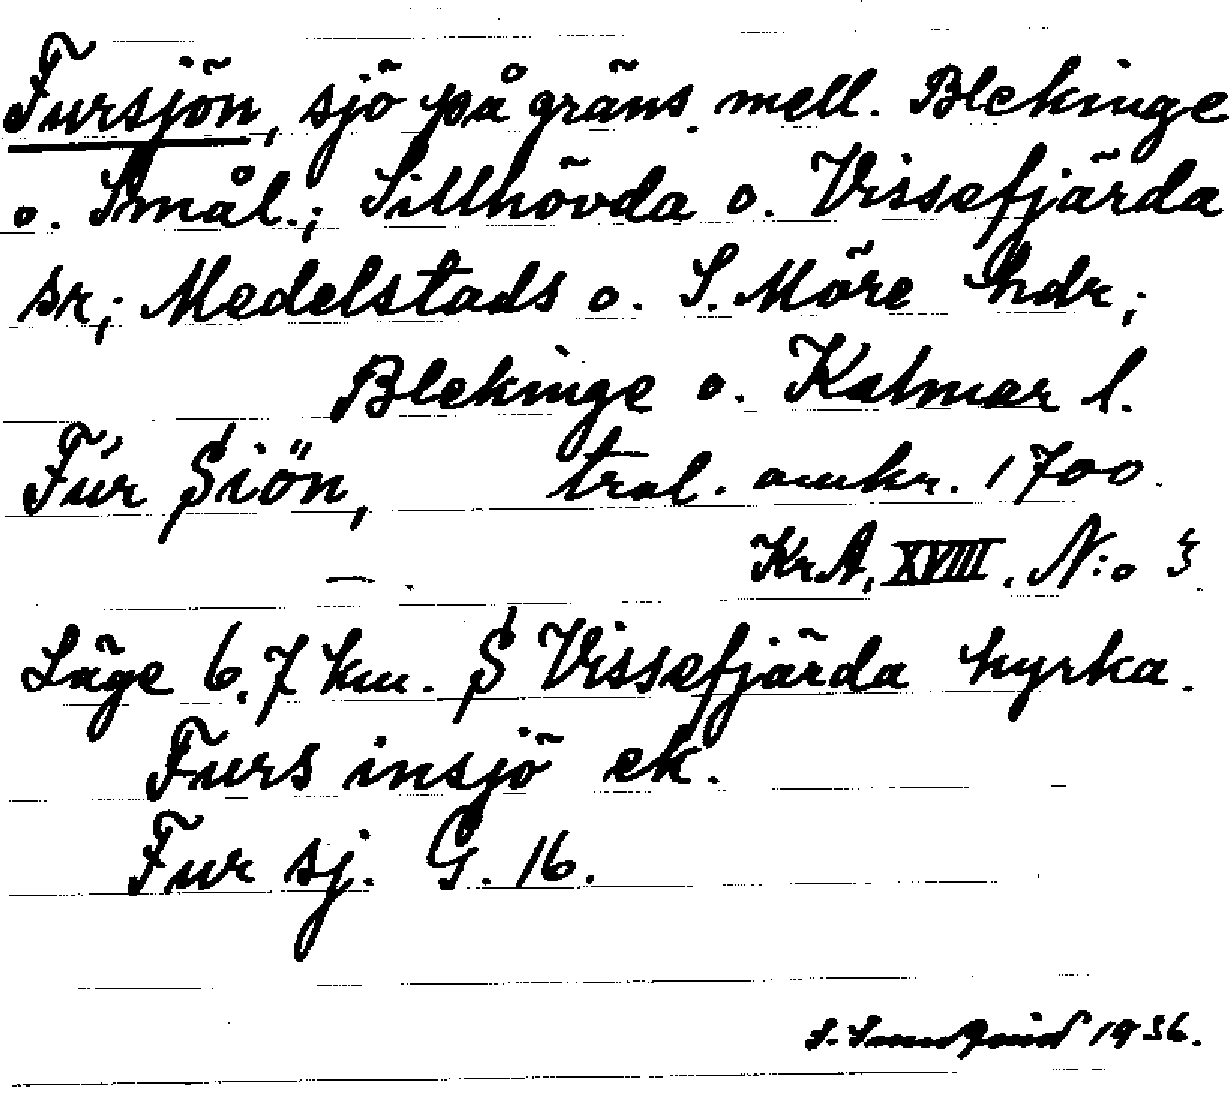 Fursjön, sjö på gräns. mell. Blekinge
o. Smål.; Sillhövda o. Vissefjärda
sr; Medelstads o. S. Möre hdr;
Blekinge o. Kalmar l.
Fúr Siön, tral. omkr. 1700.
KrA, XVIII. N:o 3
Läge 6.7 km. S Vissefjärda kyrka.
Furs insjö ek.
Fur sj. G. 16.
1936.